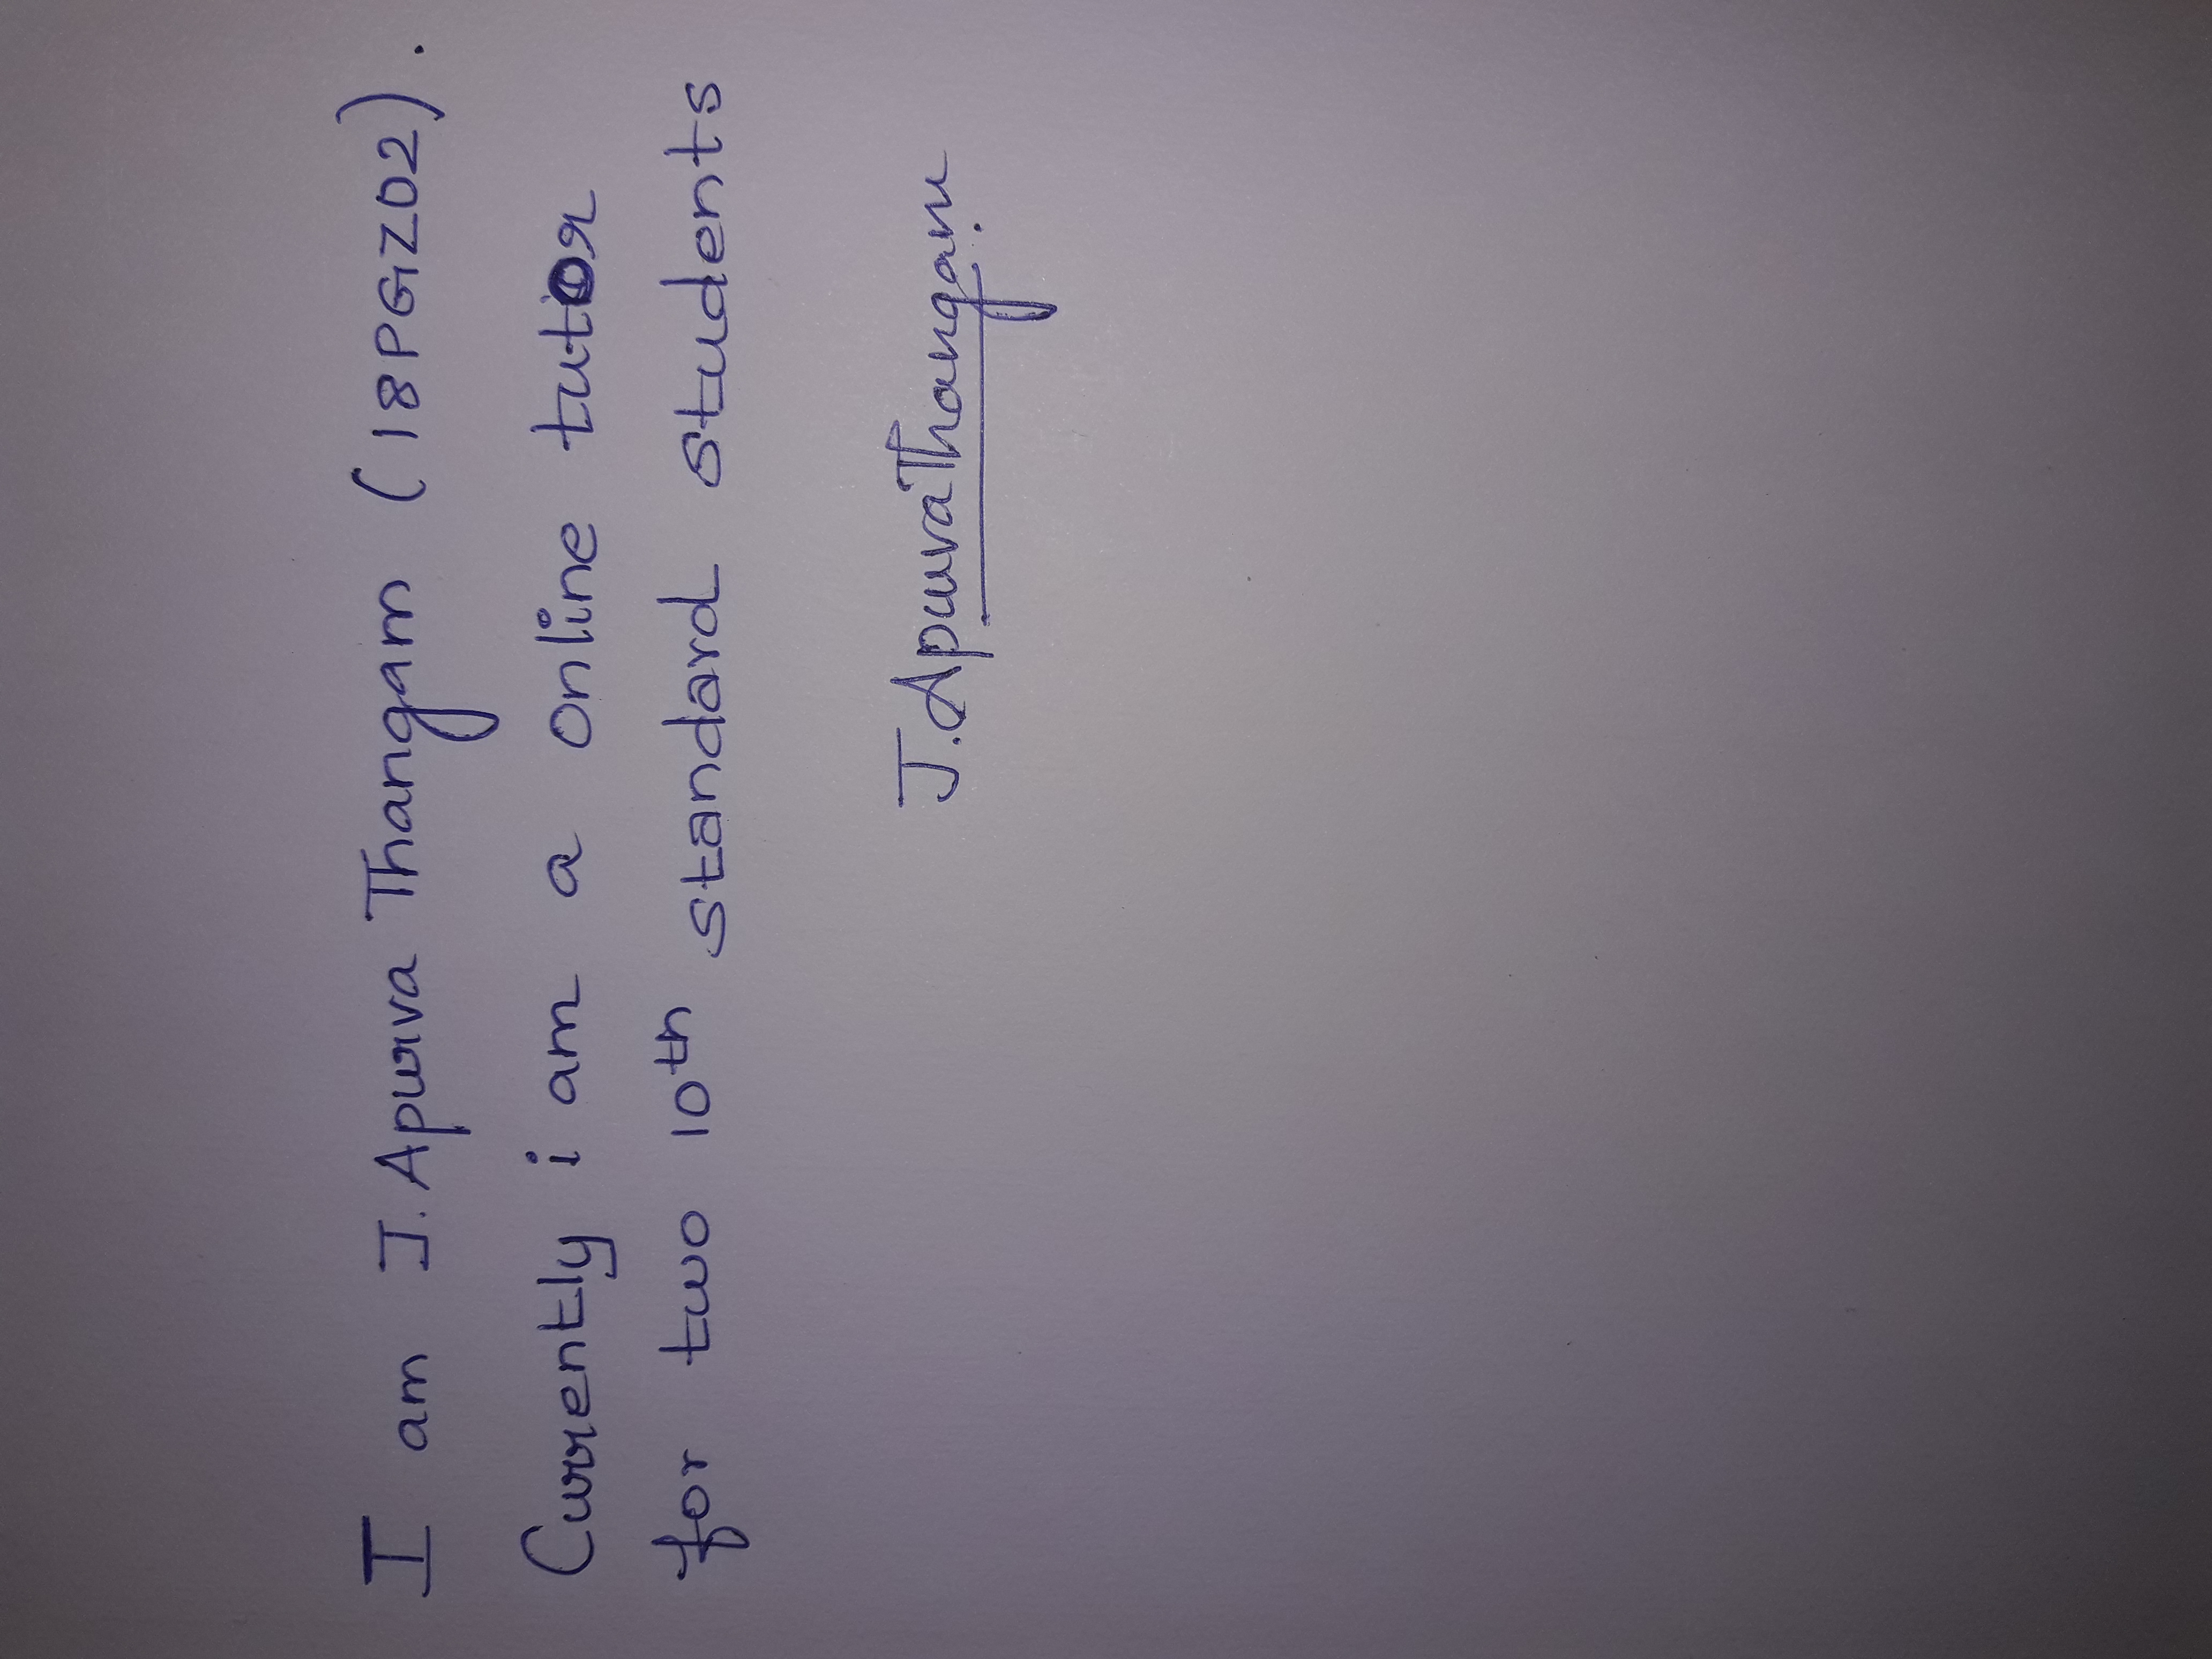 I am J. Apurva Thangam (18PGZ02).
Currently i am a online tutor
for two 10th standard students
J. Apurva Thangam